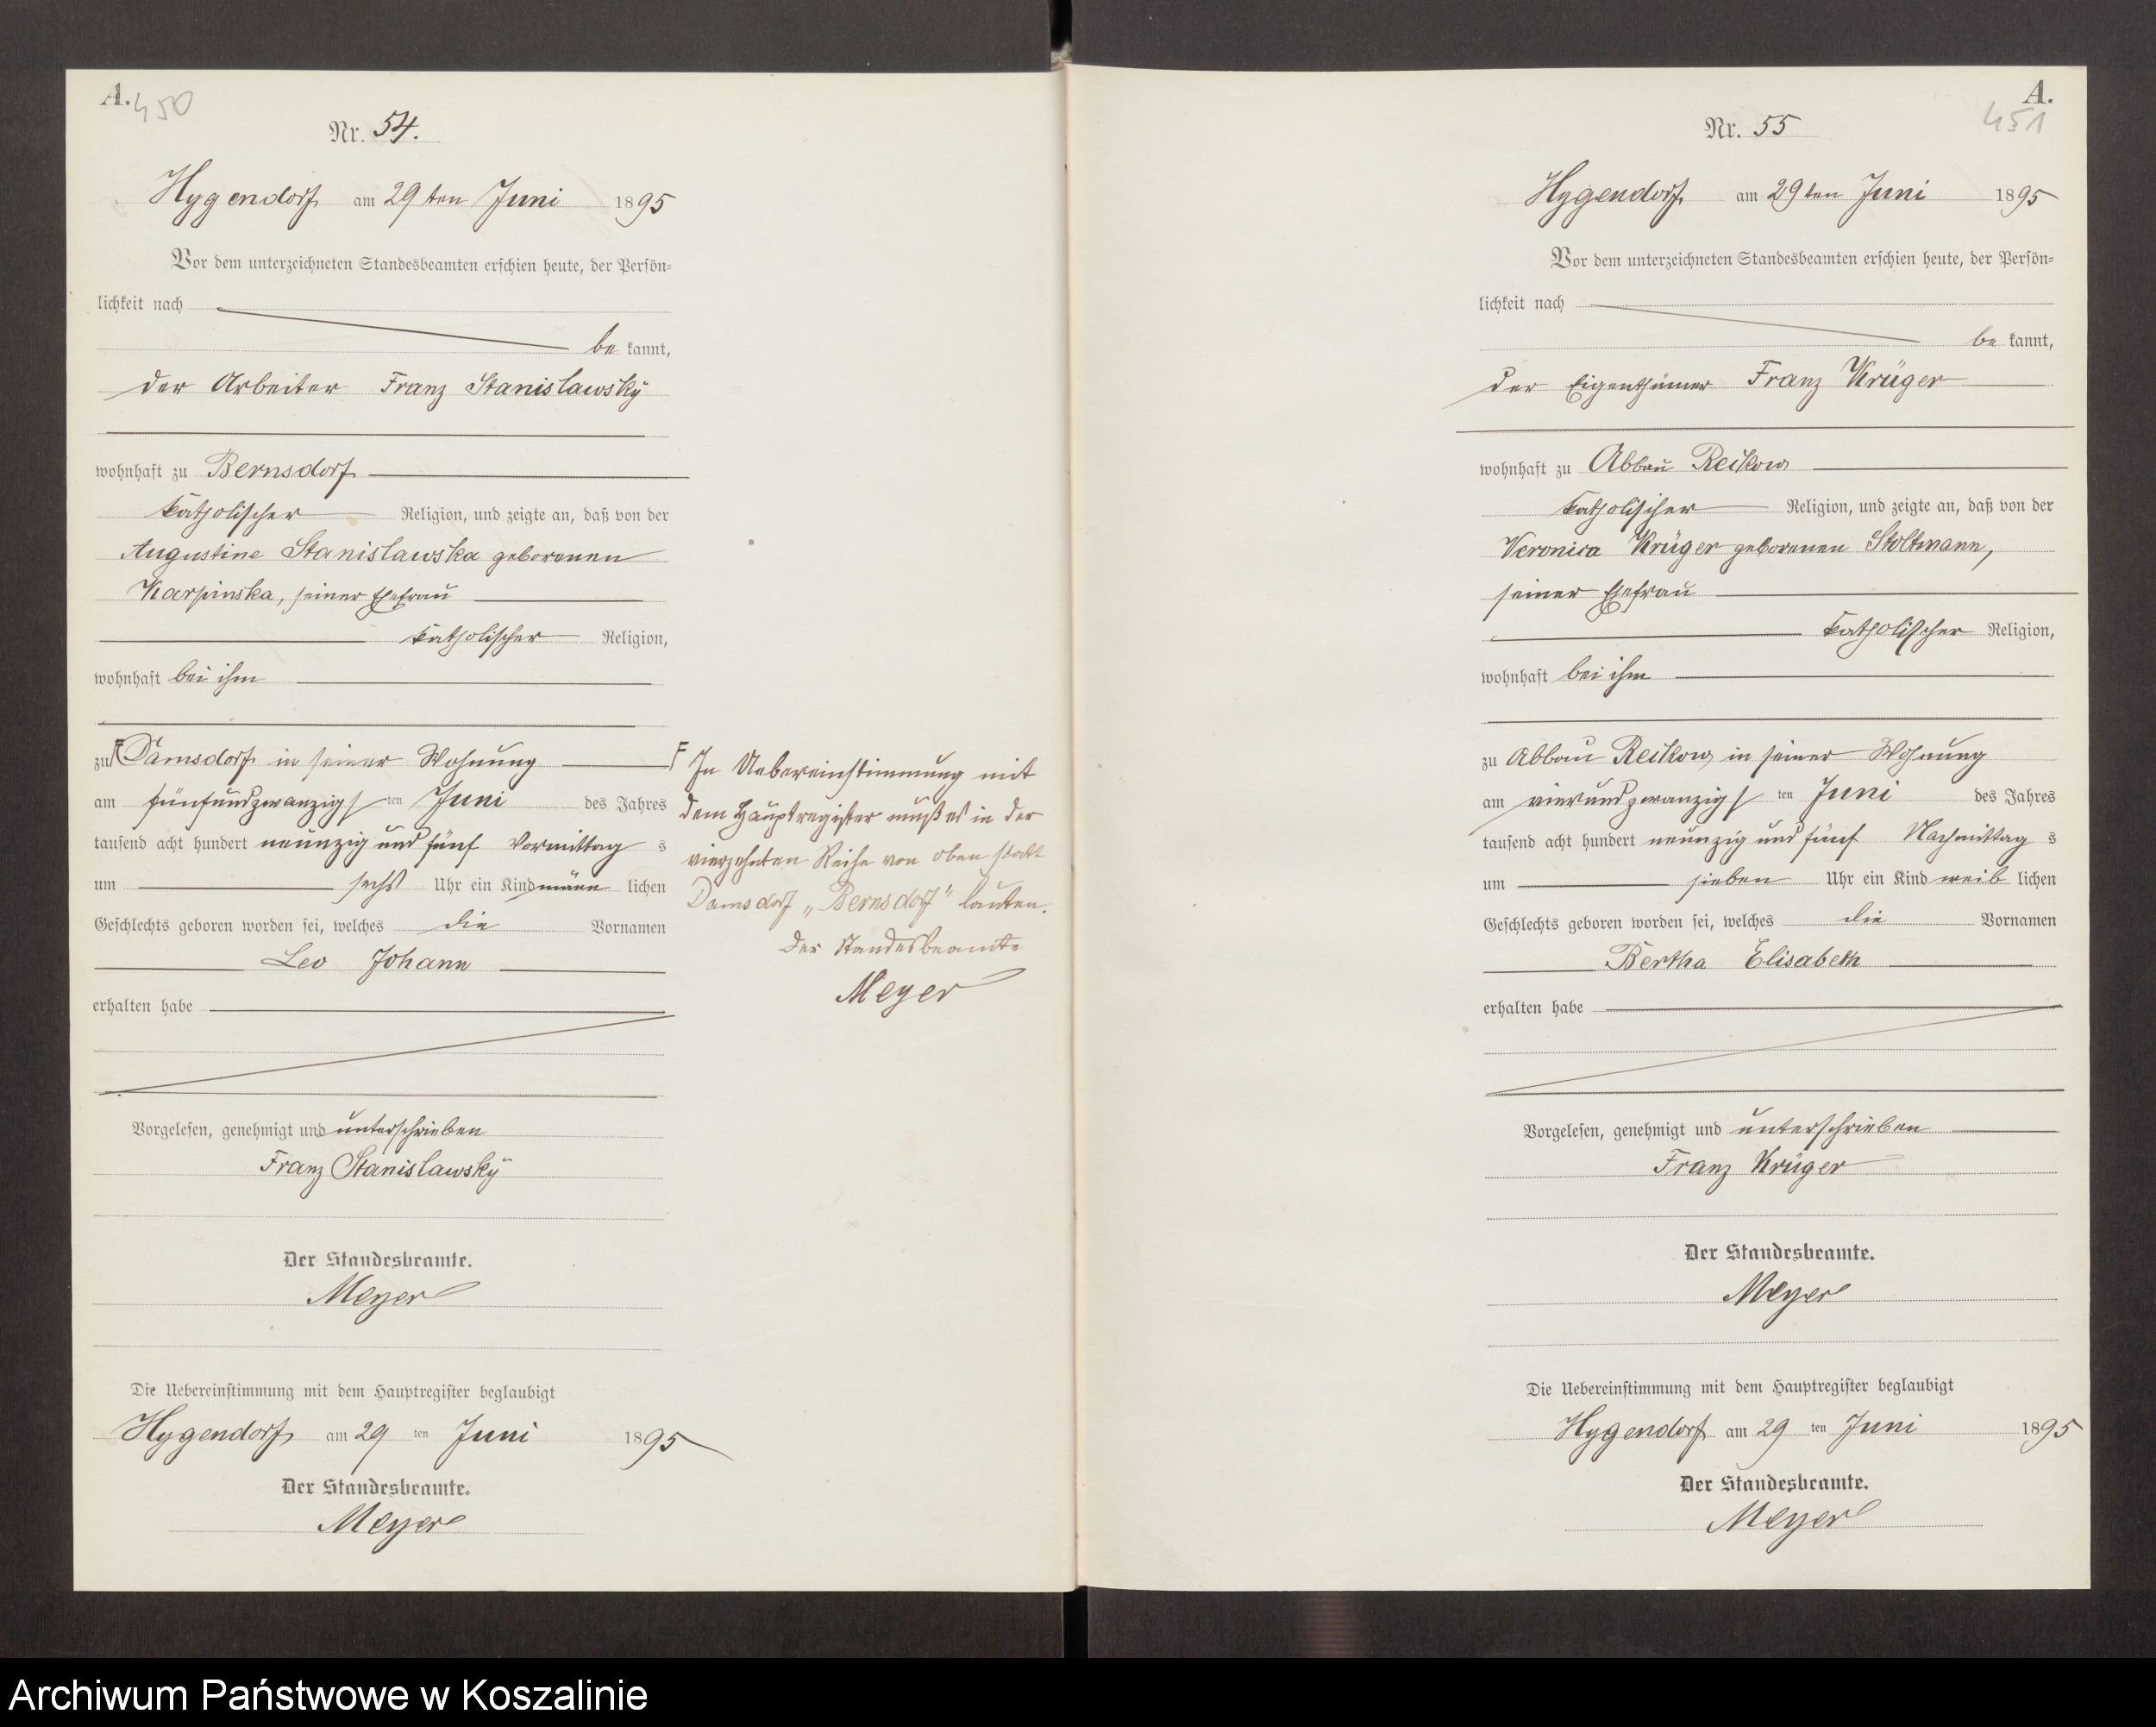 A.
450
Nr. 54.
Hygendorf am 29ten Juni 1895
Vor dem unterzeichneten Standesbeamten erschien heute, der Persön-
lichkeit nach
be kannt,
der Arbeiter Franz Stanislawsky
wohnhaft zu Bernsdorf
katholischer Religion, und zeigte an, daß von der
Augustine Stanislawska geborenen
Karpinska, seiner Ehefrau
katholischer Religion,
wohnhaft bei ihm
zu Damsdorf in seiner Wohnung
am fünfundzwanzigsten Juni des Jahres
tausend acht hundert neunzig und fünf Vormittags
um sechs Uhr ein Kind männlichen
Geschlechts geboren worden sei, welches die Vornamen
Leo Johann
erhalten habe
Vorgelesen, genehmigt und unterschrieben
Franz Stanislawsky
Der Standesbeamte.
Meyer
Die Uebereinstimmung mit dem Hauptregister beglaubigt
Hygendorf am 29ten Juni 1895
Der Standesbeamte.
Meyer
F In Uebereinstimmung mit
dem Hauptregister muß es in der
vierzehnten Reihe von oben statt
Damsdorf „Bernsdorf" lauten.
Der Standesbeamte
Meyer
A.
451
Nr. 55
Hygendorf am 29ten Juni 1895
Vor dem unterzeichneten Standesbeamten erschien heute, der Persön-
lichkeit nach
be kannt,
der Eigenthümer Franz Krüger
wohnhaft zu Abbau Reckow
katholischer Religion, und zeigte an, daß von der
Veronica Krüger geborenen Stoltmann,
seiner Ehefrau
katholischer Religion,
wohnhaft bei ihm
zu Abbau Reckow in seiner Wohnung
am vierundzwanzigsten Juni des Jahres
tausend acht hundert neunzig und fünf Nachmittags
um sieben Uhr ein Kind weiblichen
Geschlechts geboren worden sei, welches die Vornamen
Bertha Elisabeth
erhalten habe
Vorgelesen, genehmigt und unterschrieben
Franz Krüger
Der Standesbeamte.
Meyer
Die Uebereinstimmung mit dem Hauptregister beglaubigt
Hygendorf am 29ten Juni 1895
Der Standesbeamte.
Meyer
Archiwum Państwowe w Koszalinie